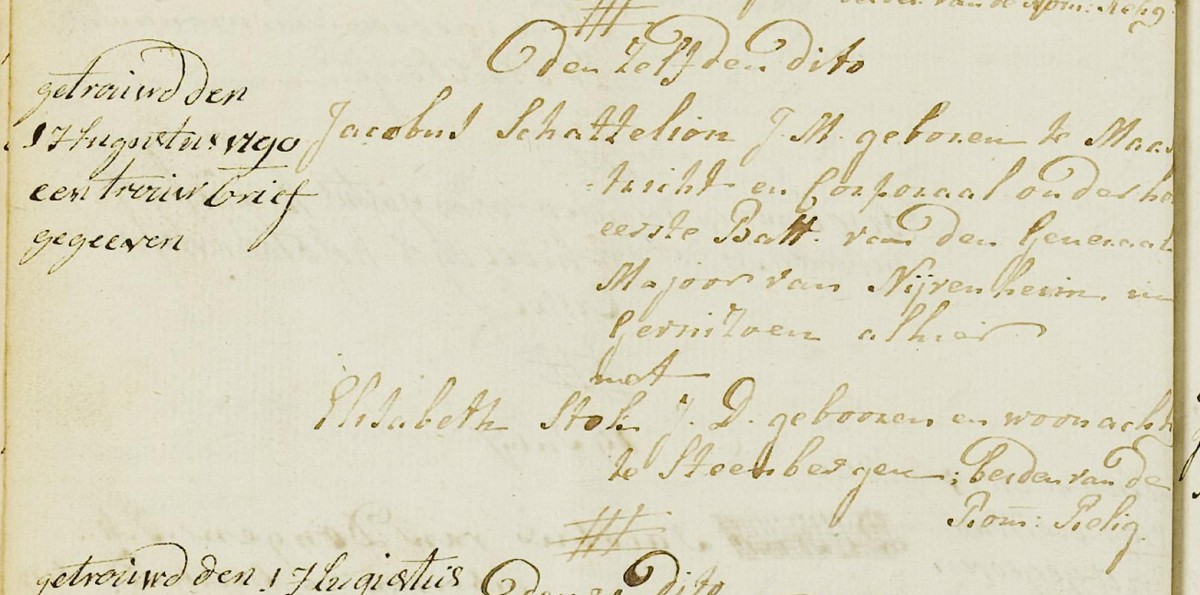 beiden van de Rom: Relig.
den zelfden dito
getrouwd den
17 Augustus 1790
een trouwbrief
gegeeven
Jacobus Schattelion J. M. geboren te Maas
tricht en Corporaal onder het
eerste Batt. van den Generaal
Majoor van Nijvenheim in
Gernizoen alhier
met
Elisabeth Stok J. D. geboren en woonacht
te Steenbergen; beiden van de
Rom: Relig.
getrouwd den 17 Augustus
den dito